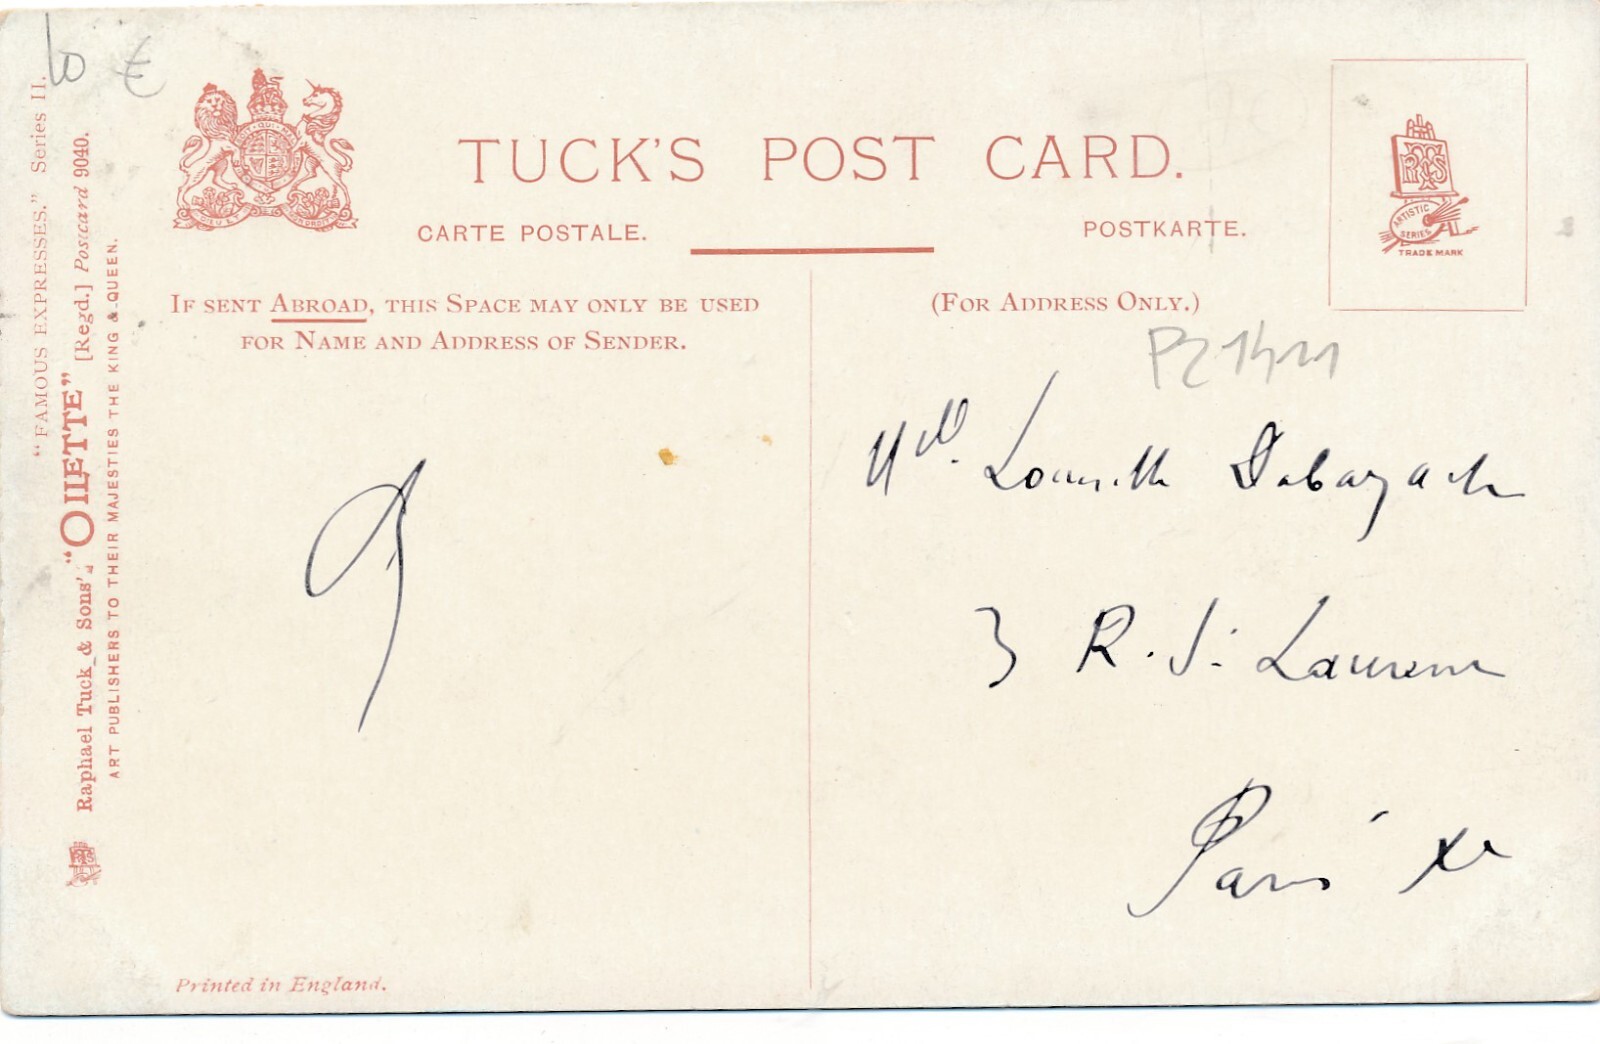 10 €
TUCK'S POST CARD.
CARTE POSTALE.
POSTKARTE.
ARTISTIC SERIES
TRADE MARK
"FAMOUS EXPRESSES." Series II.
Raphael Tuck & Sons' "OILETTE" [Regd.] Postcard 9040.
ART PUBLISHERS TO THEIR MAJESTIES THE KING & QUEEN.
IF SENT ABROAD, THIS SPACE MAY ONLY BE USED
FOR NAME AND ADDRESS OF SENDER.
(FOR ADDRESS ONLY.)
Mlle.
3 R. St. Laurent
Paris Xe
Printed in England.